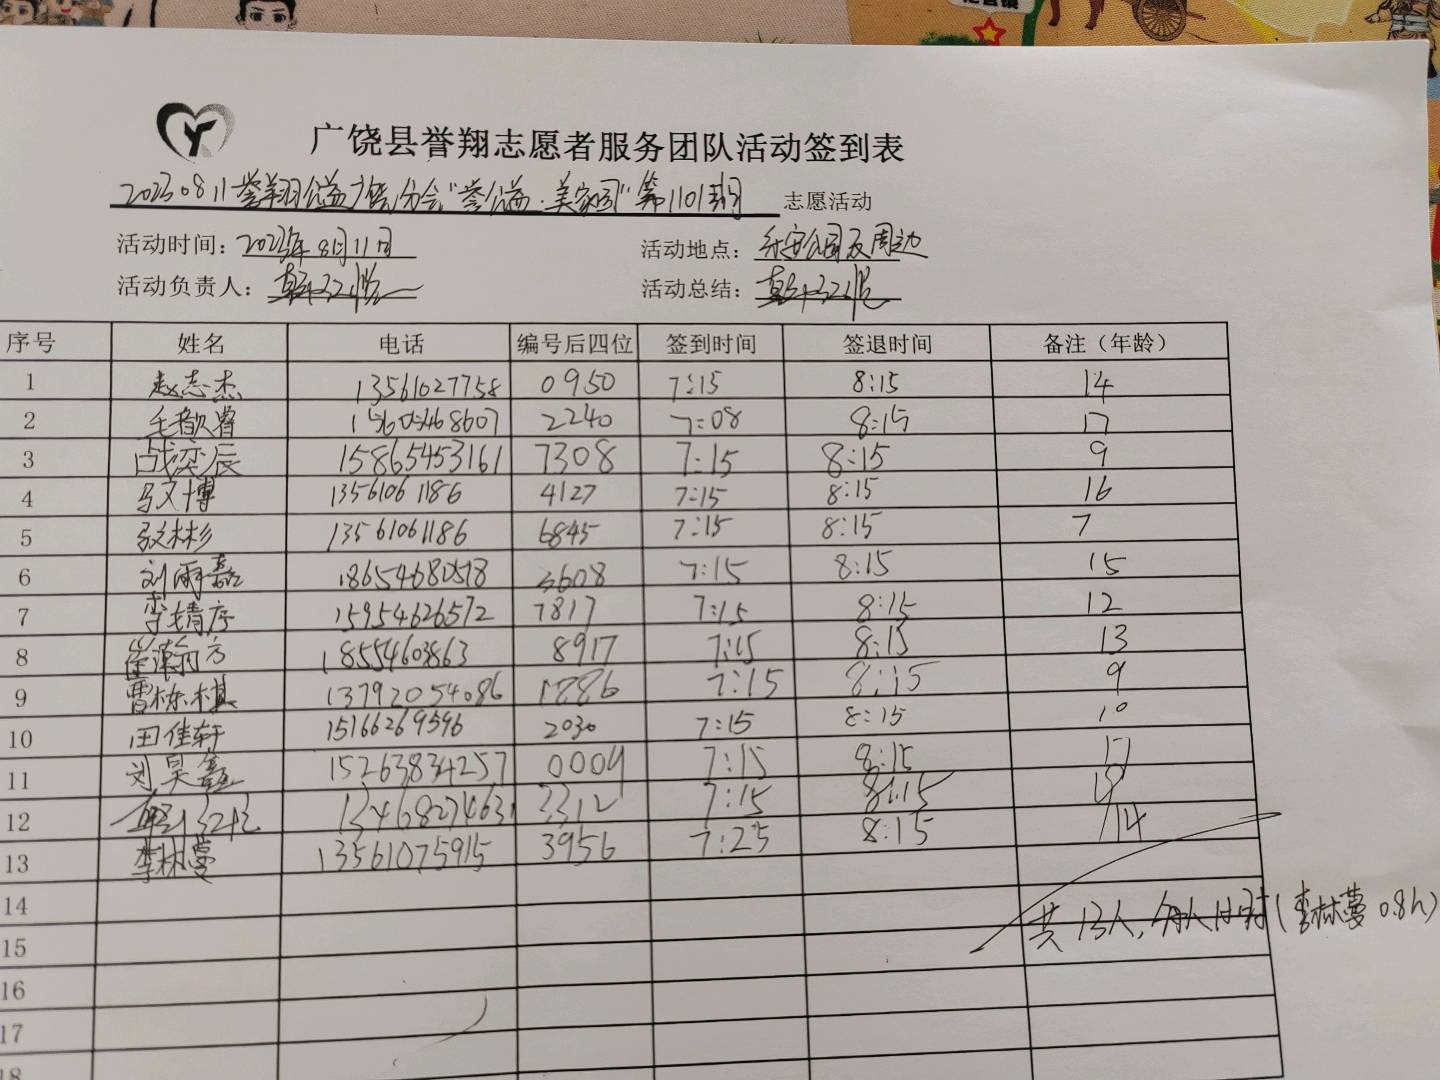 广饶县誉翔志愿者服务团队活动签到表
20230811誉翔公益广饶分会“誉公益·美家园”第1101期 志愿活动
活动时间：2023年8月11日 活动地点：乐安公园及周边
活动负责人： 活动总结：
序号 姓名 电话 编号后四位 签到时间 签退时间 备注（年龄）
1 赵志杰 13561027758 0950 7:15 8:15 14
2 毛歆睿 15605468607 2240 7:08 8:15 17
3 占奕辰 15865453161 7308 7:15 8:15 9
4 马文博 13561061186 4127 7:15 8:15 16
5 张林杉 13561061186 6845 7:15 8:15 7
6 刘雨嘉 18654680518 3608 7:15 8:15 15
7 李婧序 15954626572 7817 7:15 8:15 12
8 崔瀚方 18554603863 8917 7:15 8:15 13
9 曹栎棋 13792054086 1886 7:15 8:15 9
10 田佳轩 15166269596 2030 7:15 8:15 10
11 刘昊鑫 15263834257 0009 7:15 8:15 17
12 13468274631 3312 7:15 8:15
13 李林蔓 13561075915 3956 7:25 8:15 14
14 共13人，每人1小时（李林蔓0.8h）
15
16
17
18